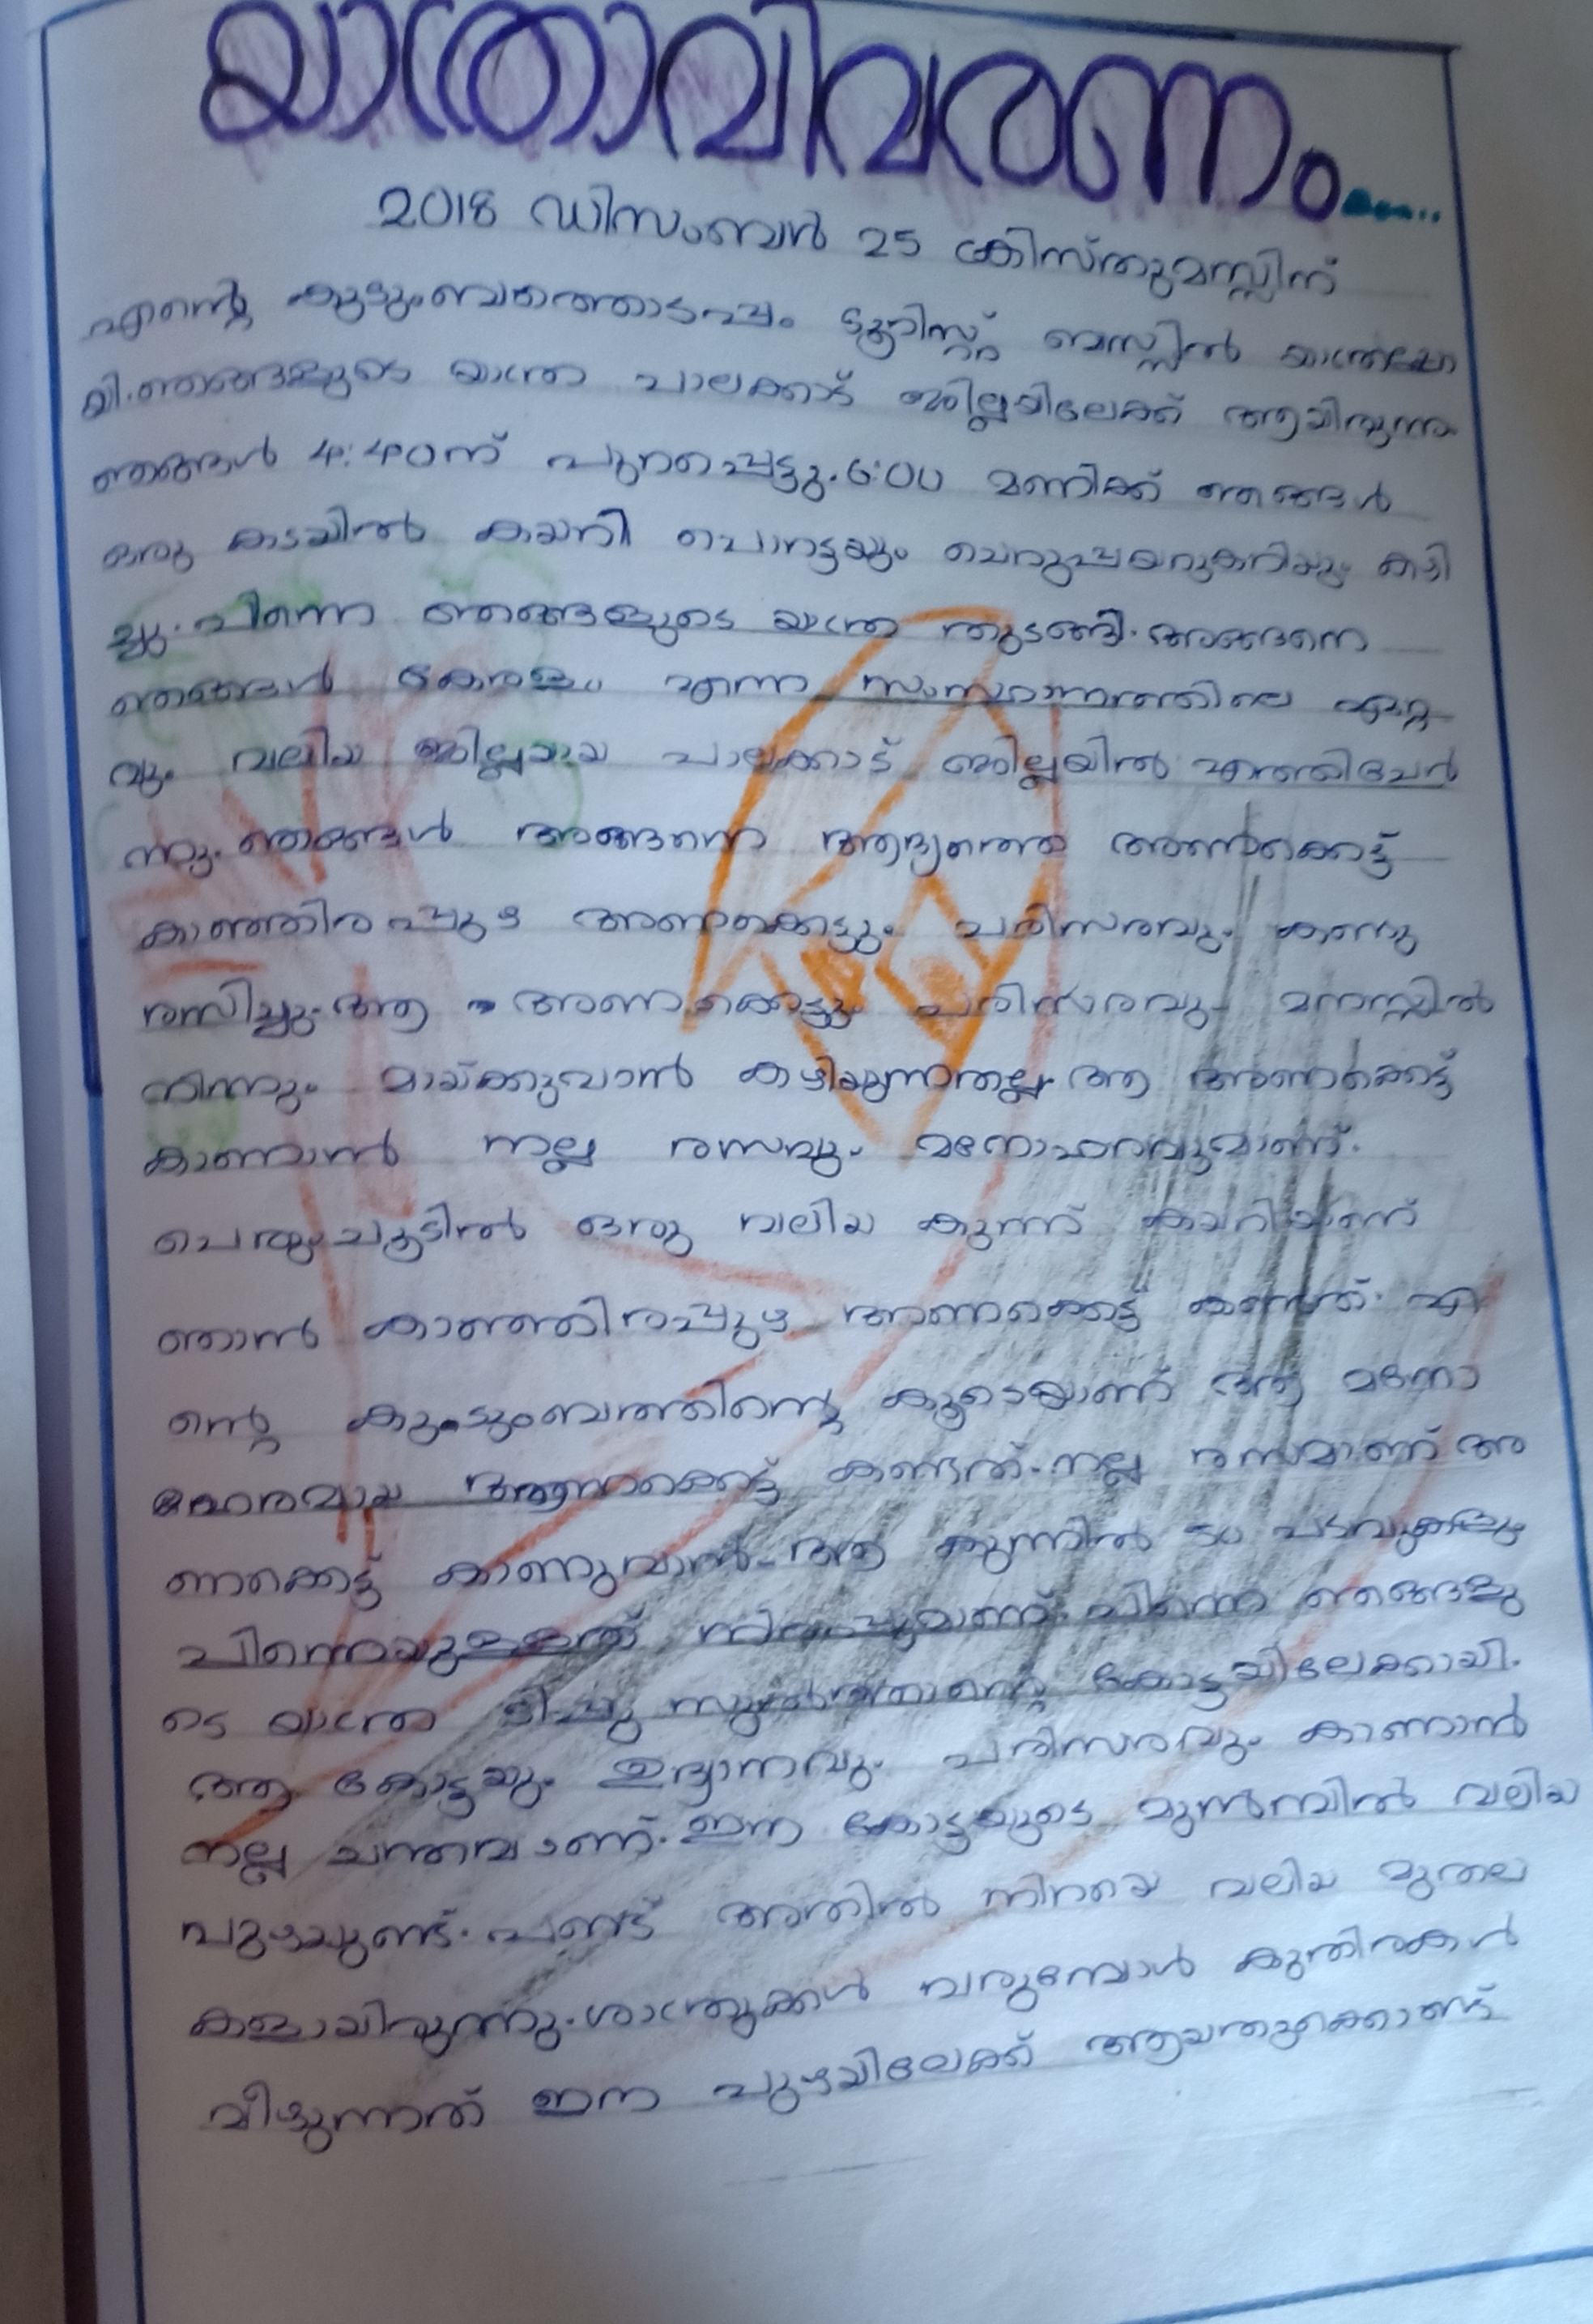 യാത്രാവിവരണം....
2018 ഡിസംബർ 25 ക്രിസ്തുമസ്സിന്
എന്റെ കുടുംബത്തൊടപ്പം ടൂറിസ്റ്റ് ബസ്സിൽ യാത്രപോ
യി. ഞങ്ങളുടെ യാത്ര പാലക്കാട് ജില്ലയിലേക്ക് ആയിരുന്നു
ഞങ്ങൾ 4:40ന് പുറപ്പെട്ടു. 6:00 മണിക്ക് ഞങ്ങൾ
ഒരു കടയിൽ കയറി പൊറട്ടയും ചെറുപ്പയറുകറിയും കടി
ച്ചു. പിന്നെ ഞങ്ങളുടെ യാത്ര തുടങ്ങി. അങ്ങനെ
ഞങ്ങൾ കേരളം എന്ന സംസ്ഥാനത്തിലെ ഏറ്റ
വും വലിയ ജില്ലയായ പാലക്കാട് ജില്ലയിൽ എത്തിച്ചേർ
ന്നു. ഞങ്ങൾ അങ്ങനെ ആദ്യത്തെ അണക്കെട്ട്
കാഞ്ഞിരപ്പുഴ അണക്കെട്ടും പരിസരവും കണ്ടു
രസിച്ചു. ആ അണക്കെട്ടും പരിസരവും മനസ്സിൽ
നിന്നും മായ്ക്കുവാൻ കഴിയുന്നതല്ല. ആ അണക്കെട്ട്
കാണാൻ നല്ല രസവും മനോഹരവുമാണ്.
പെരുംചൂടിൽ ഒരു വലിയ കുന്ന് കയറിയാണ്
ഞാൻ കാഞ്ഞിരപ്പുഴ അണക്കെട്ട് കണ്ടത്. എ
ന്റെ കുടുംബത്തിന്റെ കൂടെയാണ് ആ മനോ
ഹരമായ അണക്കെട്ട് കണ്ടത്. നല്ല രസമാണ് അ
ണക്കെട്ട് കാണുവാൻ. ആ കുന്നിൽ 50 പടവുകളും
പിന്നെയുള്ളത് നിരപ്പുമാണ്. പിന്നെ ഞങ്ങളു
ടെ യാത്ര ടിപ്പു സുൽത്താന്റെ കോട്ടയിലേക്കായി.
ആ കോട്ടയും ഉദ്യാനവും പരിസരവും കാണാൻ
നല്ല ചന്തമാണ്. ഈ കോട്ടയുടെ മുൻമ്പിൽ വലിയ
പുഴയുണ്ട്. പണ്ട് അതിൽ നിറയെ വലിയ മുതല
കളായിരുന്നു. ശത്രുക്കൾ വരുമ്പോൾ കുതിരകൾ
വീഴുന്നത് ഈ പുഴയിലേക്ക് ആയതുക്കൊണ്ട്